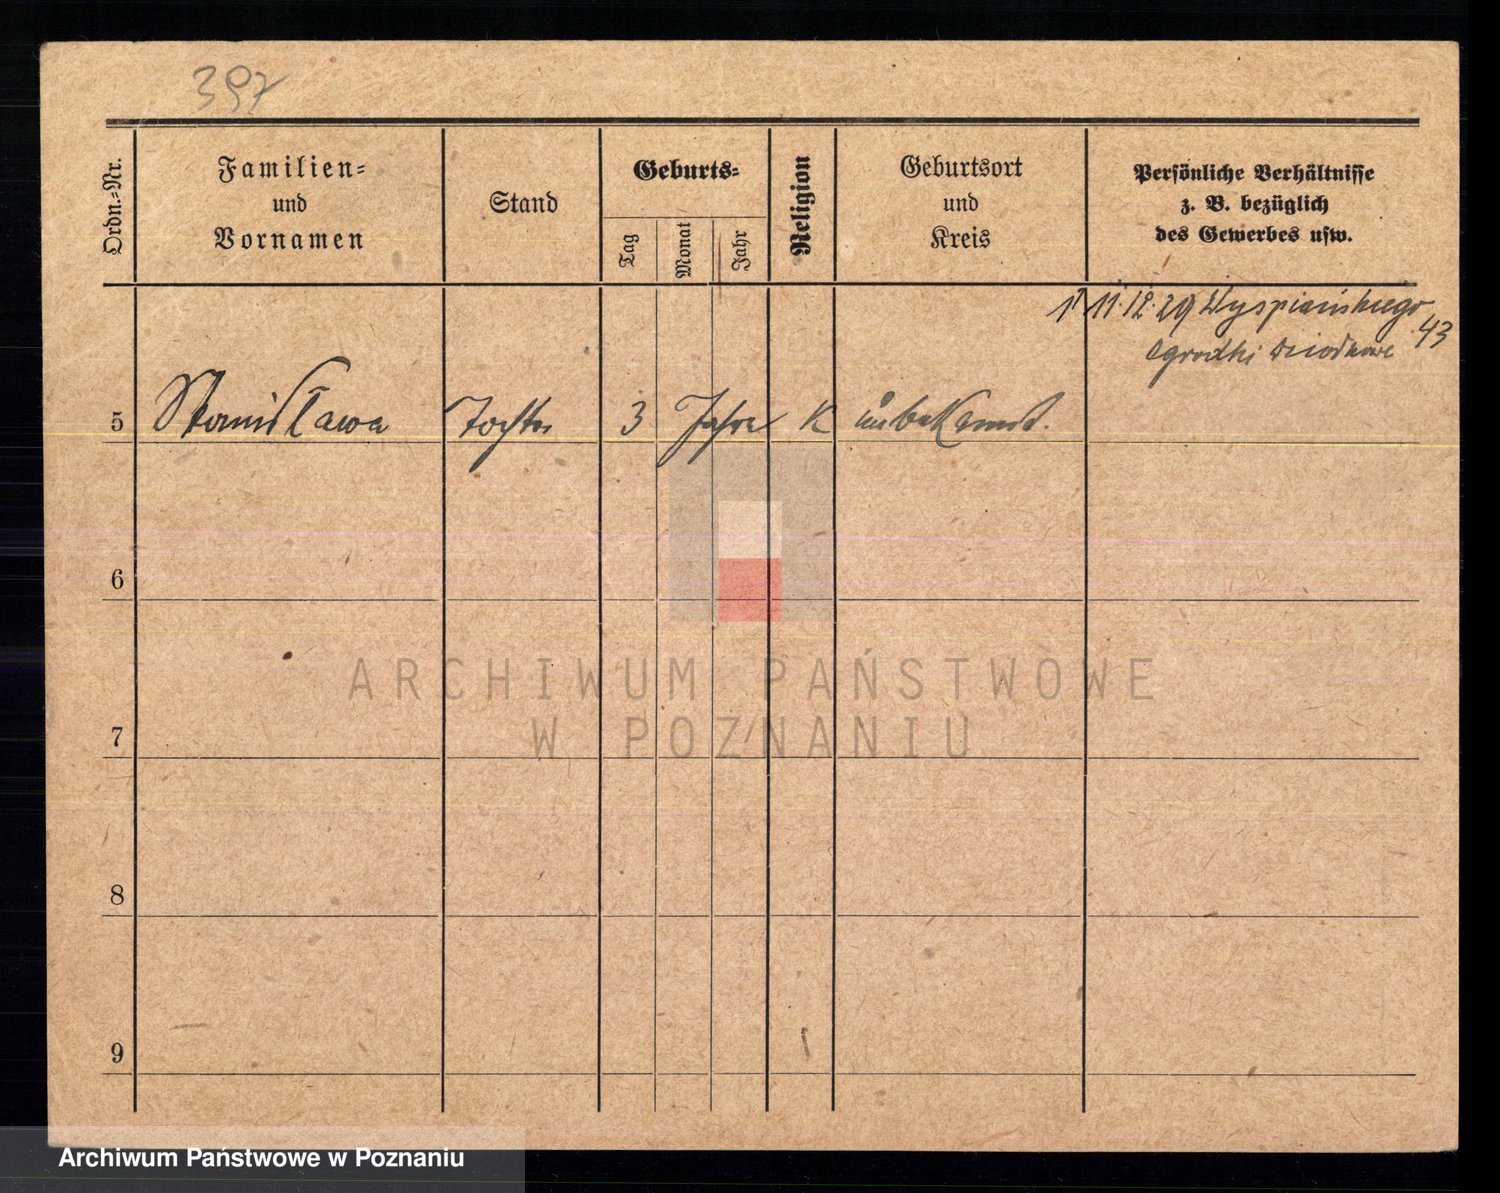 397
Ordn.-Nr.
Familien-
und
Vornamen
Stand
Geburts-
Tag
Monat
Jahr
Religion
Geburtsort
und
Kreis
Persönliche Verhältnisse
z. B. bezüglich
des Gewerbes usw.
11.12.29 Wyspiańskiego
43
Ogródki
5 Stanisława Tochter 3 Jahre K unbekannt.
6
7
8
9
ARCHIWUM PAŃSTWOWE
W POZNANIU
Archiwum Państwowe w Poznaniu